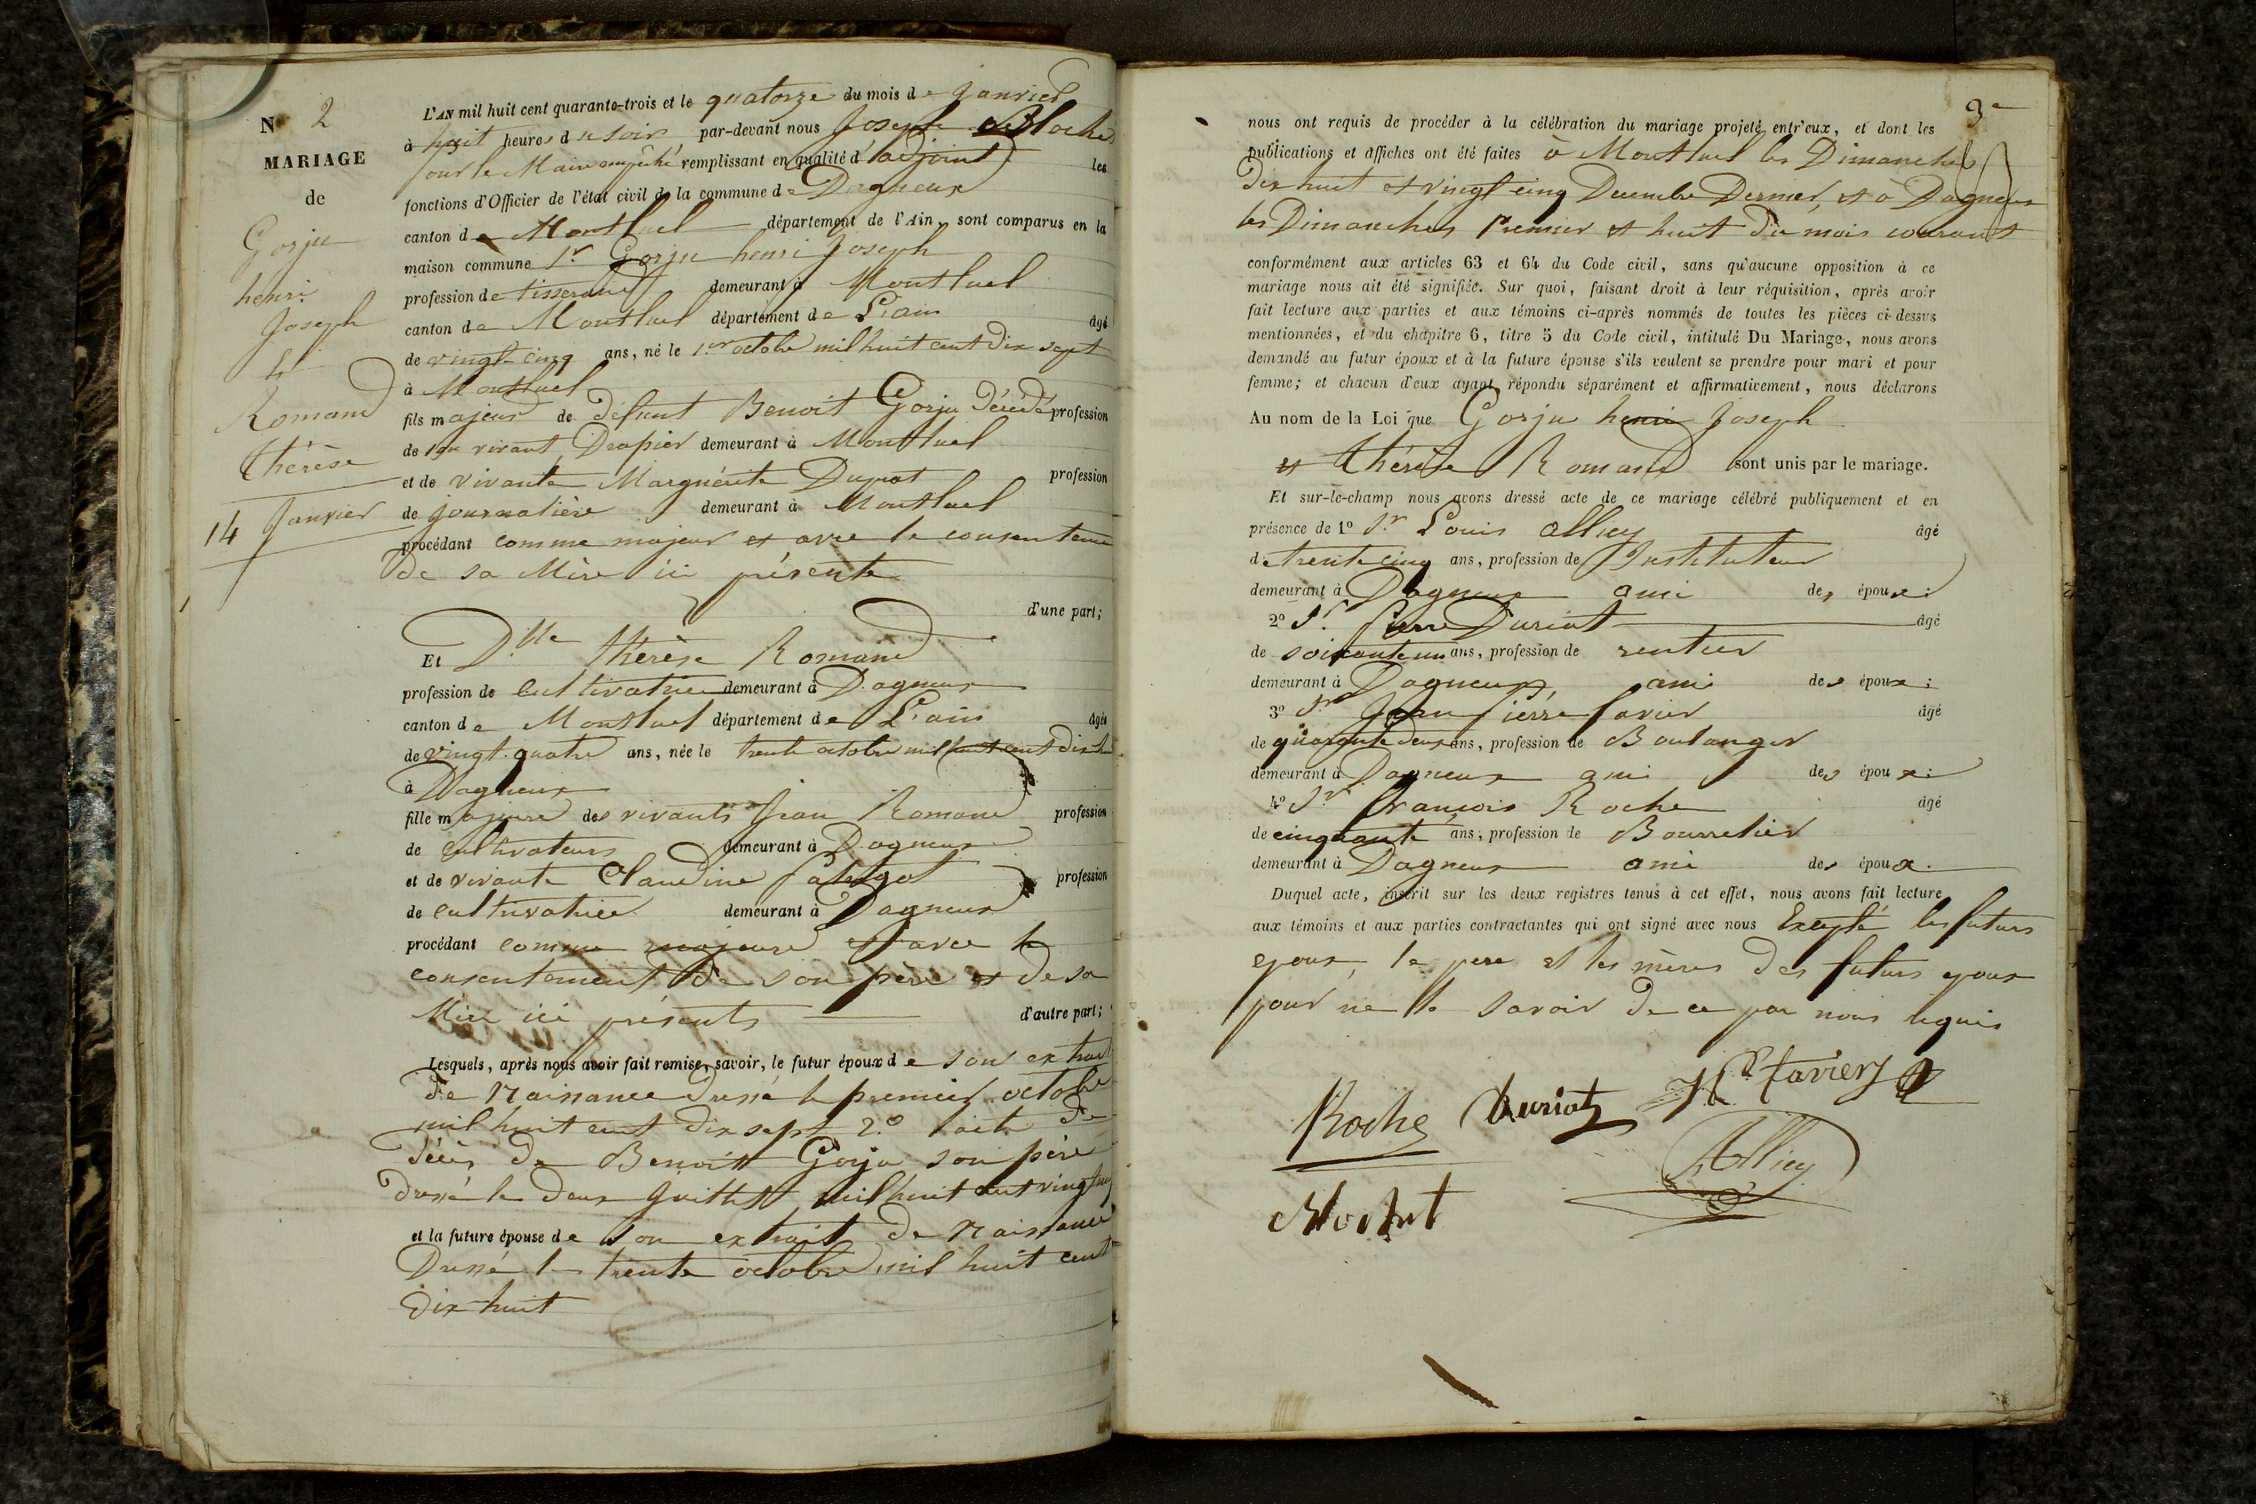 N° 2
MARIAGE
de
Gorju
henri
Joseph
&
Romand
thérèse
14 Janvier
L'AN mil huit cent quarante-trois et le quatorze du mois de Janvier
à huit heures du soir par-devant nous Joseph
pour le Maire empêché remplissant en qualité d'adjoint les
fonctions d'Officier de l'état civil de la commune de Dagneux
canton de Montluel département de l'Ain, sont comparus en la
maison commune Sr Gorju henri Joseph
profession de tisserand demeurant à Montluel
canton de Montluel département de L'ain âgé
de vingt-cinq ans, né le 1er octobre mil huit cent dix sept
à Montluel
fils majeur de défunt Benoit Gorju Décédé profession
de son vivant Drapier demeurant à Montluel
et de vivante Marguerite profession
de journalière demeurant à Montluel
procédant comme majeur et avec le consentement
de sa Mère ici présente
d'une part;
Et Dlle thérèse Romand
profession de Cultivatrice demeurant à Dagneux
canton de Montluel département de L'ain âgée
de vingt-quatre ans, née le trente octobre mil huit cent dix huit
à Dagneux
fille majeure des vivants Jean Romand profession
de cultivateurs demeurant à Dagneux
et de vivante Claudine profession
de cultivatrice demeurant à Dagneux
procédant comme majeure et avec le
consentement de son père et de sa
Mère ici présents d'autre part;
Lesquels, après nous avoir fait remise, savoir, le futur époux de son extrait
de Naissance Dressé le premier octobre
mil huit cent dix sept 2° l'acte de
décès de Benoit Gorju son père
dressé le deux Juillet mil huit cent vingt
et la future épouse de son extrait de naissance
Dressé le trente octobre mil huit cent
dix huit
3e
nous ont requis de procéder à la célébration du mariage projeté entr'eux, et dont les
publications et affiches ont été faites à Montluel les Dimanches
Dix huit et vingt cinq Decembre Dernier, et à Dagneux
les Dimanches Premier et huit du mois courant
conformément aux articles 63 et 64 du Code civil, sans qu'aucune opposition à ce
mariage nous ait été signifiée. Sur quoi, faisant droit à leur réquisition, après avoir
fait lecture aux parties et aux témoins ci-après nommés de toutes les pièces ci-dessus
mentionnées, et du chapitre 6, titre 5 du Code civil, intitulé Du Mariage, nous avons
demandé au futur époux et à la future épouse s'ils veulent se prendre pour mari et pour
femme; et chacun d'eux ayant répondu séparément et affirmativement, nous déclarons
Au nom de la Loi que Gorju henri Joseph
et thérèse Romand sont unis par le mariage.
Et sur-le-champ nous avons dressé acte de ce mariage célébré publiquement et en
présence de 1° Sr Louis Alliey âgé
de trente cinq ans, profession de Instituteur
demeurant à Dagneux ami des époux;
2° Sr Pierre Duriat âgé
de soixante un ans, profession de rentier
demeurant à Dagneux ami des époux;
3° Sr Jean Pierre favier âgé
de quarante deux ans, profession de Boulanger
demeurant à Dagneux ami des époux;
4° Sr François Roche âgé
de cinquante ans, profession de Bourrelier
demeurant à Dagneux ami des époux.
Duquel acte, inscrit sur les deux registres tenus à cet effet, nous avons fait lecture
aux témoins et aux parties contractantes qui ont signé avec nous Excepté les futurs
epoux, le pere et les mères des futurs epoux
pour ne le savoir de ce par nous requis
Roche Duriat favier
Alliey